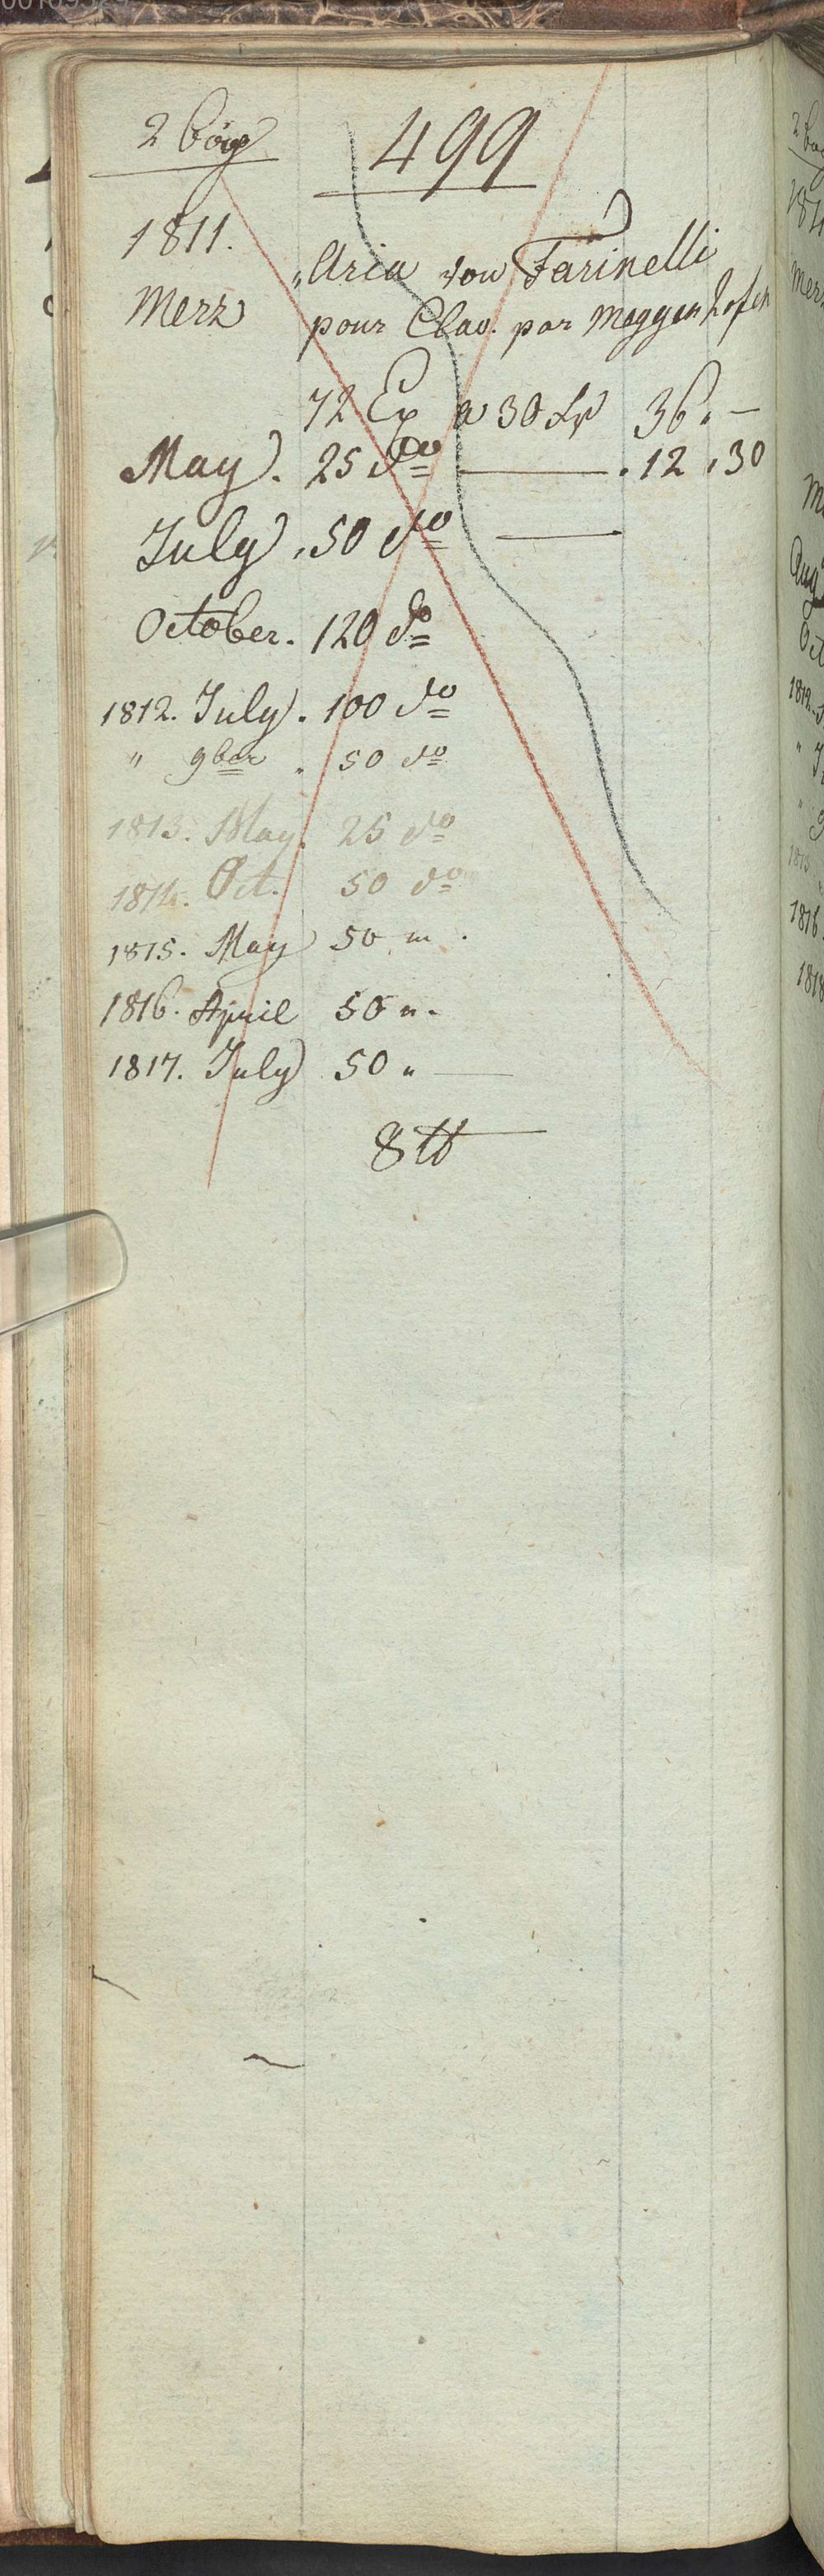 2 bög
499
1811.
Merz
Aria von Farinelli
pour Clav. par Meggenhofen
72 Ex a 30 Xr 36. —
May. 25 do — . 12 . 30
July . 50 do —
October. 120 do
1812. July . 100 do
" 9ber . 50 do
1813. May. 25 do
1814. Oct. 50 do
1815. May 50 " .
1816. April 50 " .
1817. July 50 " —
8 tt